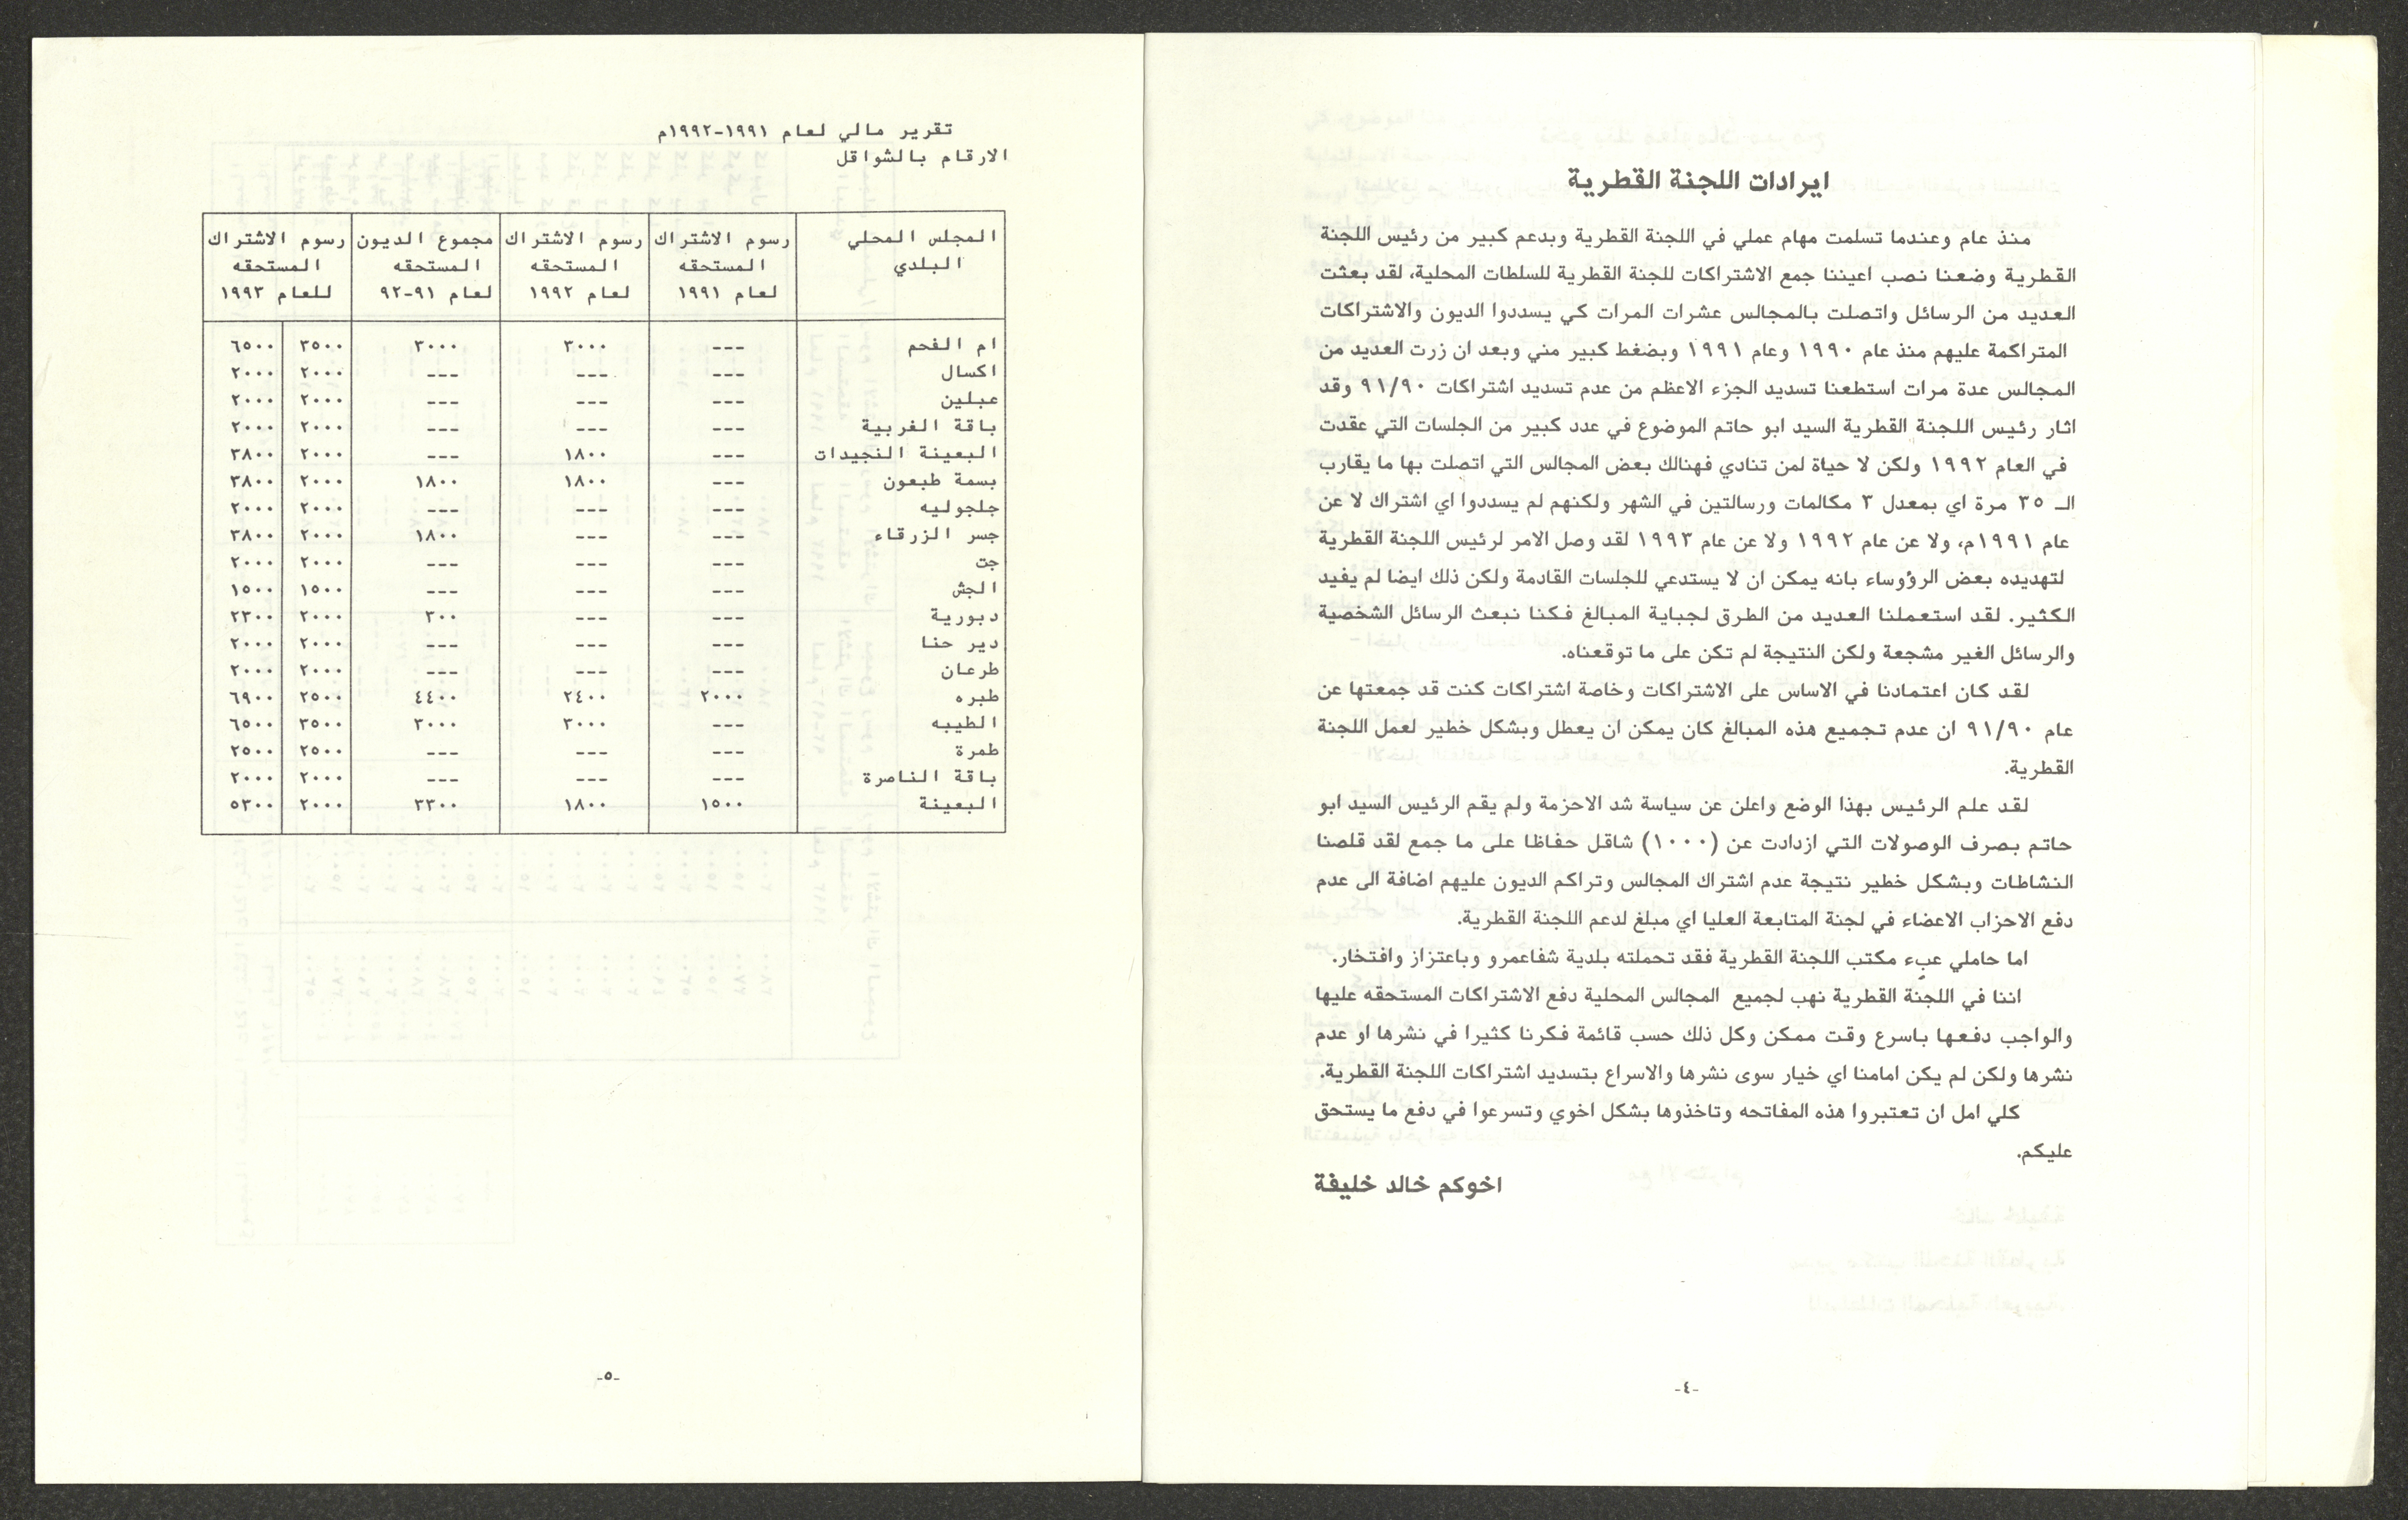 ايرادات اللجنة القطرية
منذ عام وعندما تسلمت مهام عملي في اللجنة القطرية وبدعم كبير من رئيس اللجنة
القطرية وضعنا نصب اعيننا جمع الاشتراكات للجنة القطرية للسلطات المحلية، لقد بعثت
العديد من الرسائل واتصلت بالمجالس عشرات المرات كي يسددوا الديون والاشتراكات
المتراكمة عليهم منذ عام ١٩٩٠ وعام ١٩٩١ وبضغط كبير مني وبعد ان زرت العديد من
المجالس عدة مرات استطعنا تسديد الجزء الاعظم من عدم تسديد اشتراكات ٩١/٩٠ وقد
اثار رئيس اللجنة القطرية السيد ابو حاتم الموضوع في عدد كبير من الجلسات التي عقدت
في العام ١٩٩٢ ولكن لا حياة لمن تنادي فهنالك بعض المجالس التي اتصلت بها ما يقارب
الـ ٣٥ مرة اي بمعدل ٣ مكالمات ورسالتين في الشهر ولكنهم لم يسددوا اي اشتراك لا عن
عام ١٩٩١م، ولا عن عام ١٩٩٢ ولا عن عام ١٩٩٣ لقد وصل الامر لرئيس اللجنة القطرية
لتهديده بعض الرؤوساء بانه يمكن ان لا يستدعي للجلسات القادمة ولكن ذلك ايضا لم يفيد
الكثير. لقد استعملنا العديد من الطرق لجباية المبالغ فكنا نبعث الرسائل الشخصية
والرسائل الغير مشجعة ولكن النتيجة لم تكن على ما توقعناه.
لقد كان اعتمادنا في الاساس على الاشتراكات وخاصة اشتراكات كنت قد جمعتها عن
عام ٩١/٩٠ ان عدم تجميع هذه المبالغ كان يمكن ان يعطل وبشكل خطير لعمل اللجنة
القطرية.
لقد علم الرئيس بهذا الوضع واعلن عن سياسة شد الاحزمة ولم يقم الرئيس السيد ابو
حاتم بصرف الوصولات التي ازدادت عن (١٠٠٠) شاقل حفاظا على ما جمع لقد قلصنا
النشاطات وبشكل خطير نتيجة عدم اشتراك المجالس وتراكم الديون عليهم اضافة الى عدم
دفع الاحزاب الاعضاء في لجنة المتابعة العليا اي مبلغ لدعم اللجنة القطرية.
اما حاملي عبء مكتب اللجنة القطرية فقد تحملته بلدية شفاعمرو وباعتزاز وافتخار.
اننا في اللجنة القطرية نهب لجميع المجالس المحلية دفع الاشتراكات المستحقه عليها
والواجب دفعها باسرع وقت ممكن وكل ذلك حسب قائمة فكرنا كثيرا في نشرها او عدم
نشرها ولكن لم يكن امامنا اي خيار سوى نشرها والاسراع بتسديد اشتراكات اللجنة القطرية.
كلي امل ان تعتبروا هذه المفاتحه وتاخذوها بشكل اخوي وتسرعوا في دفع ما يستحق
عليكم.
اخوكم خالد خليفة
-٤-
تقرير مالي لعام ١٩٩١-١٩٩٢م
الارقام بالشواقل
المجلس المحلي رسوم الاشتراك رسوم الاشتراك مجموع الديون رسوم الاشتراك
البلدي المستحقه المستحقه المستحقه المستحقه
لعام ١٩٩١ لعام ١٩٩٢ لعام ٩١-٩٢ للعام ١٩٩٣
ام الفحم --- ٣٠٠٠ ٣٠٠٠ ٣٥٠٠ ٦٥٠٠
اكسال --- --- --- ٢٠٠٠ ٢٠٠٠
عبلين --- --- --- ٢٠٠٠ ٢٠٠٠
باقة الغربية --- --- --- ٢٠٠٠ ٢٠٠٠
البعينة النجيدات --- ١٨٠٠ --- ٢٠٠٠ ٣٨٠٠
بسمة طبعون --- ١٨٠٠ ١٨٠٠ ٢٠٠٠ ٣٨٠٠
جلجوليه --- --- --- ٢٠٠٠ ٢٠٠٠
جسر الزرقاء --- --- ١٨٠٠ ٢٠٠٠ ٣٨٠٠
جت --- --- --- ٢٠٠٠ ٢٠٠٠
الجش --- --- --- ١٥٠٠ ١٥٠٠
دبورية --- --- ٣٠٠ ٢٠٠٠ ٢٣٠٠
دير حنا --- --- --- ٢٠٠٠ ٢٠٠٠
طرعان --- --- --- ٢٠٠٠ ٢٠٠٠
طبره ٢٠٠٠ ٢٤٠٠ ٤٤٠٠ ٢٥٠٠ ٦٩٠٠
الطيبه --- ٣٠٠٠ ٣٠٠٠ ٣٥٠٠ ٦٥٠٠
طمرة --- --- --- ٢٥٠٠ ٢٥٠٠
باقة الناصرة --- --- --- ٢٠٠٠ ٢٠٠٠
البعينة ١٥٠٠ ١٨٠٠ ٣٣٠٠ ٢٠٠٠ ٥٣٠٠
-٥-